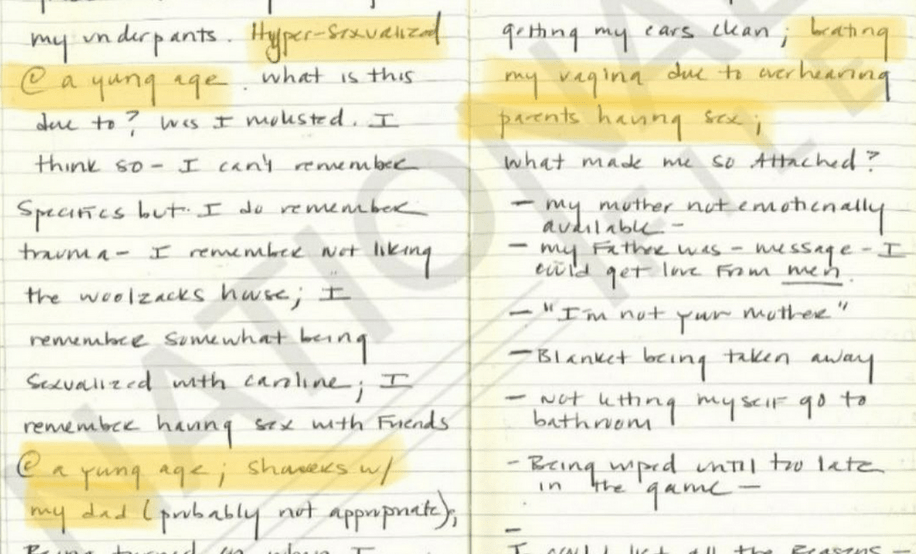 my underpants. Hyper-sexualized
@ a yung age. what is this
due to? was I molested. I
think so - I can't remember
Specifics but I do remember
trauma - I remember not liking
the woolzacks house; I
remember somewhat being
Sexualized with caroline; I
remember having sex with Friends
@ a yung age; showers w/
my dad (probably not appropriate);
Being turned on when I
getting my ears clean;
my vagina due to overhearing
parents having sex;
what made me so Attached?
- my mother not emotionally
available -
- my Father was - message - I
could get love from men
- "I'm not your mother"
- Blanket being taken away
- Not letting myself go to
bathroom
- Being wiped until too late
in the game -
-
I all the Reasons -
NATIONAL FILE